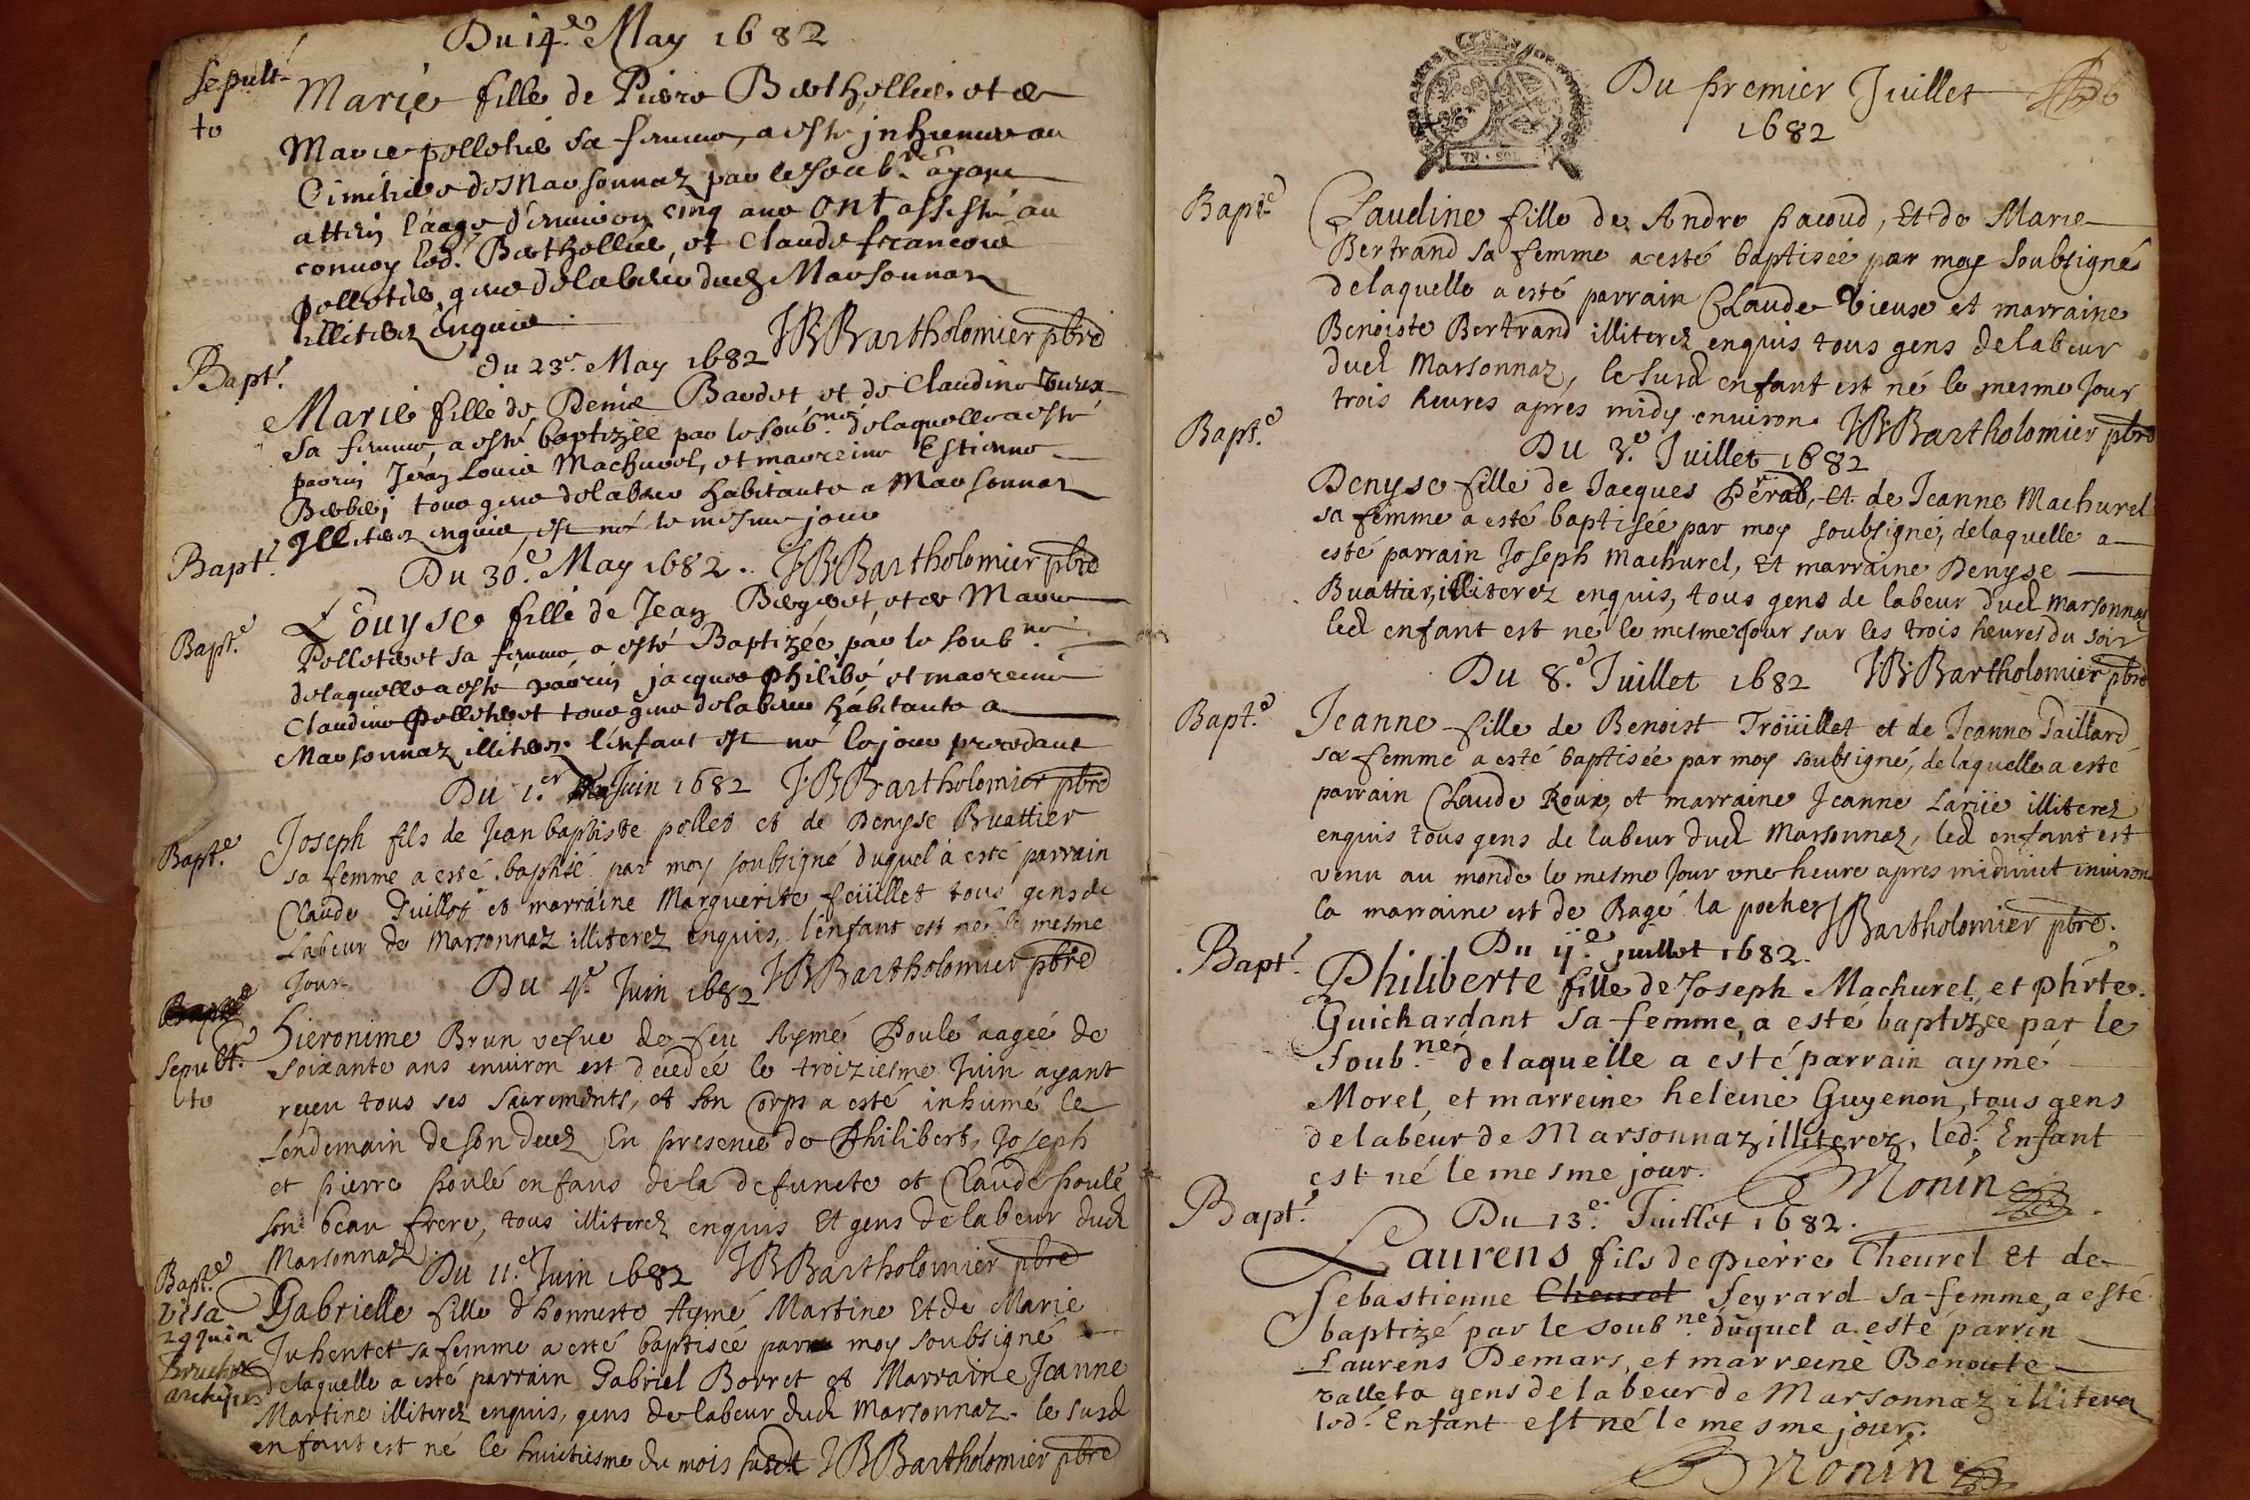 Du 14.e May 1682
Sepult-
to
Marie fille de Pierre Berthollier et de
Marie pollotiere sa femme, a esté jnhumée au
Cimitiere de Marsonnaz par le soub.né ayant
attein l'aage d'environ cinq ans ont assisté au
convoy led. Berthollier, et Claude francois
pollotier, gens de labeur dud Marsonnaz
illiterez enquis.
JBBartholomier pbre
Bapt.
Du 23.e May 1682
Marie fille de Denis Baudet et de Claudine
sa femme, a esté baptizée par le soub.né de laquelle a esté
parrin Jean Louis Machurel, et marreine Estienne
tous gens de labeur habitants a Marsonnaz
Illiterez enquis, est né le mesme jour
JBBartholomier pbre
Bapt.
Du 30.e May 1682.
Bapt.e
Louyse fille de Jean Bergeret, et de Marie
Polleteret sa femme a esté Baptizée par le soub.né
de laquelle a esté parrin jacques philibé et marreine
Claudine Polleteret tous gens de labeur habitants a
Marsonnaz illiterez. l'enfant est né le jour precedant
Du 1.er Juin 1682 JBBartholomier pbre
Bapt.e
Joseph fils de Jean baptiste pellet et de Denyse Buattier
sa femme a esté baptisé par moy soubsigné duquel à esté parrain
Claude Guillot et marraine Marguerite feüillet tous gens de
Labeur de Marsonnaz illiterez enquis, l'enfant est né le mesme
Jour.
Du 4.e Juin 1682 JBBartholomier pbre
Bapt.e
Sepult.
to
Hieronime Brun vefve de feu Aymé Poulé aagée de
soixante ans environ est decedée le troiziesme Juin ayant
receu tous ses sacrements, et son Corps a esté inhumé le
Lendemain de son deced En presence de Philibert, Joseph
et pierre poulé enfans de la defuncte et Claude poulé
son beau frere, tous illiterez enquis Et gens de labeur dud
Marsonnaz.
Du 11.e Juin 1682 JBBartholomier pbre
Bapt.e
visa
29 Juin
Gabrielle fille d'honneste Aymé Martine Et de Marie
Juhentet sa femme a esté baptisée par moy soubsigné
de laquelle a esté parrain Gabriel Borret et Marraine Jeanne
Martine illiterez enquis, gens de labeur dud Marsonnaz. le susd
enfant est né le huictiesme du mois susd JBBartholomier pbre
VN · SOL
Du premier Juillet
1682
Bapt.e
Claudine fille de Andre pacoud, Et de Marie
Bertrand sa femme a esté baptisée par moy soubsigné
de laquelle a esté parrain Claude Vieux et marraine
Benoiste Bertrand illiterez enquis tous gens de labeur
dud Marsonnaz, le susd enfant est né le mesme Jour
trois heures aprés midy environ JBBartholomier pbre
Bapt.e
Du 3.e Juillet 1682
Denyse fille de Jacques Perab, Et de Jeanne Machurel
sa femme a esté baptisée par moy soubsigné, de laquelle a
esté parrain Joseph Machurel, Et marraine Denyse
Buattier, illiterez enquis, tous gens de labeur dud Marsonnaz
led enfant est né le mesme Jour sur les trois heures du soir
Du 8.e Juillet 1682 JBBartholomier pbre
Bapt.e
Jeanne fille de Benoist Troüillet et de Jeanne Paillard
sa femme a esté baptisée par moy soubsigné, de laquelle a esté
parrain Claude Roux, et marraine Jeanne Lariie illiterez
enquis tous gens de labeur dud Marsonnaz, led enfant est
venu au monde le mesme Jour une heure apres midinuict environ
la marraine est de Bagé la poche JBBartholomier pbre.
Bapt.
Du ij.e juillet 1682.
Philiberte fille de Joseph Machurel, et phrte.
Guichardant sa femme, a esté baptizée par le
Soub.né de laquelle a esté parrain aymé
Morel, et marreine heleine Guyenon, tous gens
de labeur de Marsonnaz illiterez, led. Enfant
est né le mesme jour. Monin
Bapt.
Du 13.e Juillet 1682.
Laurens fils de pierre Cheurel Et de
Sebastienne Cheurel Seyrard sa femme, a esté
baptizé par le soub.né duquel a esté parrin
Laurens Demars, et marreine Benoite
valleta gens de labeur de Marsonnaz illiterez
led. Enfant est né le mesme jour.
Monin